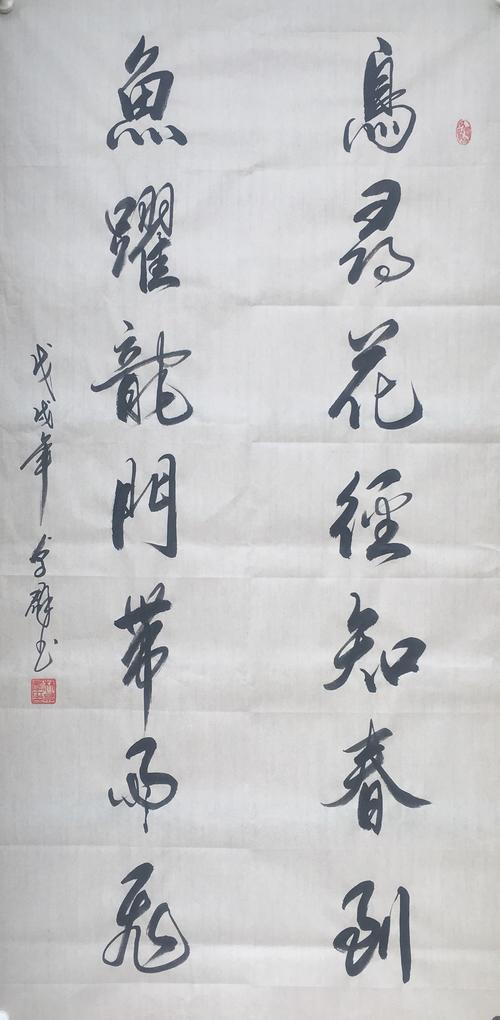 鳥尋花徑知春到
魚躍龍門帶雨飛
戊戌年